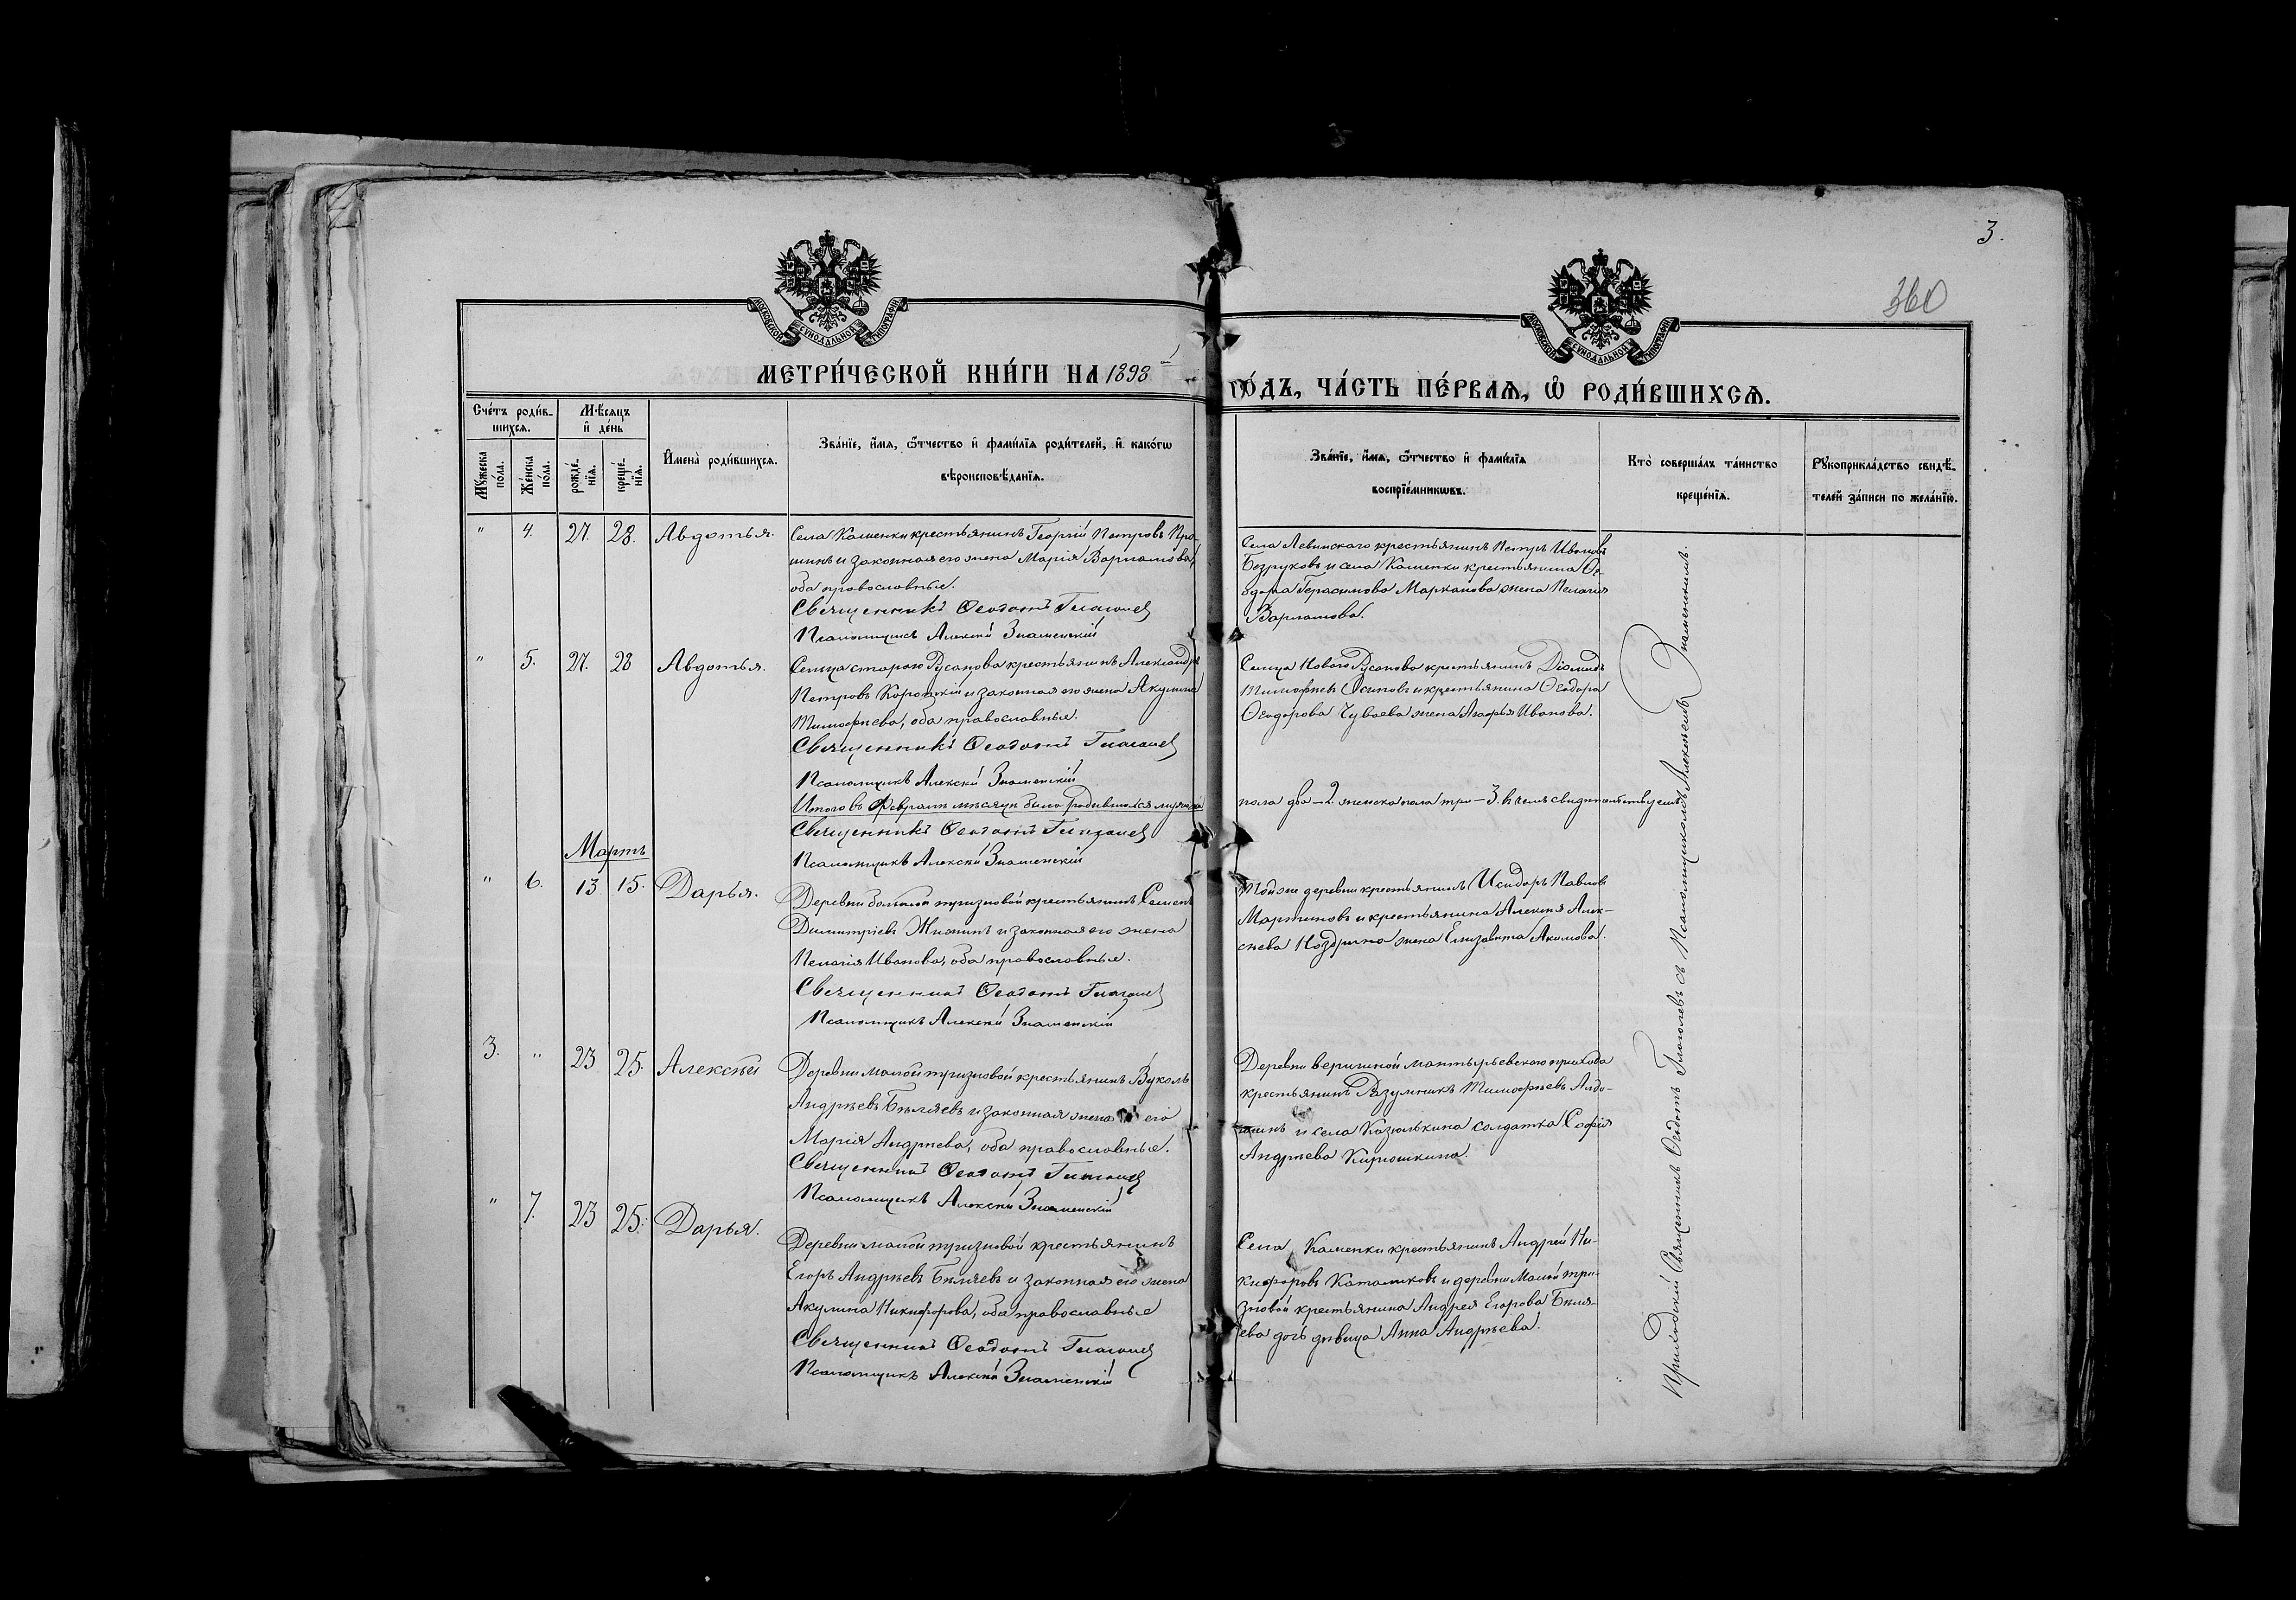 3.
360
МОСКОВСКОЙ СѴНОДАЛЬНОЙ ТИПОГРАФІИ
МОСКОВСКОЙ СѴНОДАЛЬНОЙ ТИПОГРАФІИ
МЕТРИ́ЧЕСКОЙ КНИ́ГИ НА 1898
ГО́ДЪ, ЧА́СТЬ ПЕ́РВАѦ, Ѡ҆ РОДИ́ВШИХСѦ.
Сче́тъ роди́в-
шихсѧ.
Мѣ́сѧцъ
и҆ де́нь
Мꙋ́жеска
по́ла.
Же́нска
по́ла.
рожде́-
нїѧ.
креще́-
нїѧ.
И҆мена̀ роди́вшихсѧ.
Зва́нїе, и҆́мѧ, ѻ҆́тчество и҆ фами́лїѧ роди́телей, и҆ како́гѡ
вѣроисповѣ́данїѧ.
Зва́нїе, и҆́мѧ, ѻ҆́тчество и҆ фами́лїѧ
воспрїе́мникѡвъ.
Кто̀ соверша́лъ та́инство
креще́нїѧ.
Рꙋкоприкла́дство свидѣ́-
телей за́писи по жела́нїю.
" 4. 27. 28. Авдотья.
Села Каменки крестьянинъ Георгій Петровъ Про-
шинъ и законная его жена Марія Варламова,
оба православные.
Священникъ Ѳеодотъ Глаголев
Псаломщикъ Алексѣй Знаменскій
Села Левинскаго крестьянинъ Петръ Ивановъ
Безруковъ и села Каменки крестьянина Ѳе-
одора Герасимова Марканова жена Пелагія
Варламова.
" 5. 27. 28 Авдотья.
Сельца стараго Русанова крестьянинъ Александръ
Петровъ Короткій и законная его жена Акулина
Тимофѣева, оба православные.
Священникъ Ѳеодотъ Глаголев
Псаломщикъ Алексѣй Знаменскій
Сельца Новаго Русанова крестьянинъ Діомидъ
Тимофѣевъ Осиповъ и крестьянина Ѳеодора
Ѳеодорова Чуваева жена Агафья Иванова.
Итого въ Февралѣ мѣсяцѣ было родившихся мужеска
пола два – 2. женска пола три – 3. въ чемъ свидѣтельствуемъ
Священникъ Ѳеодотъ Глаголев
Псаломщикъ Алексѣй Знаменскій
Мартъ
" 6. 13 15. Дарья.
Деревни большой тризновой крестьянинъ Семенъ
Димитріевъ Жилинъ и законная его жена
Пелагія Иванова, оба православные.
Священникъ Ѳеодотъ Глаголев
Псаломщикъ Алексѣй Знаменскій
Той же деревни крестьянинъ Исидоръ Павловъ
Мартыновъ и крестьянина Алексѣя Алек-
сѣева Ноздрина жена Елизавета Акимова.
3. " 23 25. Алексѣй
Деревни малой тризновой крестьянинъ Вуколъ
Андрѣевъ Бѣляевъ и законная жена его
Марія Андрѣева, оба православные.
Священникъ Ѳеодотъ Глаголев
Псаломщикъ Алексѣй Знаменскій
Деревни вершиной мантырьевскаго прихода
крестьянинъ Разумникъ Тимофѣевъ Алдо-
шинъ и села Казюлькина солдатка Софія
Андрѣева Кирюшкина.
" 7. 23 25. Дарья.
Деревни малой тризновой крестьянинъ
Егоръ Андрѣевъ Бѣляевъ и законная его жена
Акулина Никифорова, оба православные
Священникъ Ѳеодотъ Глаголев
Псаломщикъ Алексѣй Знаменскій
Села Каменки крестьянинъ Андрей Ни-
кифоровъ Каташковъ и деревни Малой три-
зновой крестьянина Андрея Егорова Бѣля-
ева дочь дѣвица Анна Андрѣева.
Приходскій Священникъ Ѳеодотъ Глаголевъ съ Псаломщикомъ Алексѣемъ Знаменскимъ.